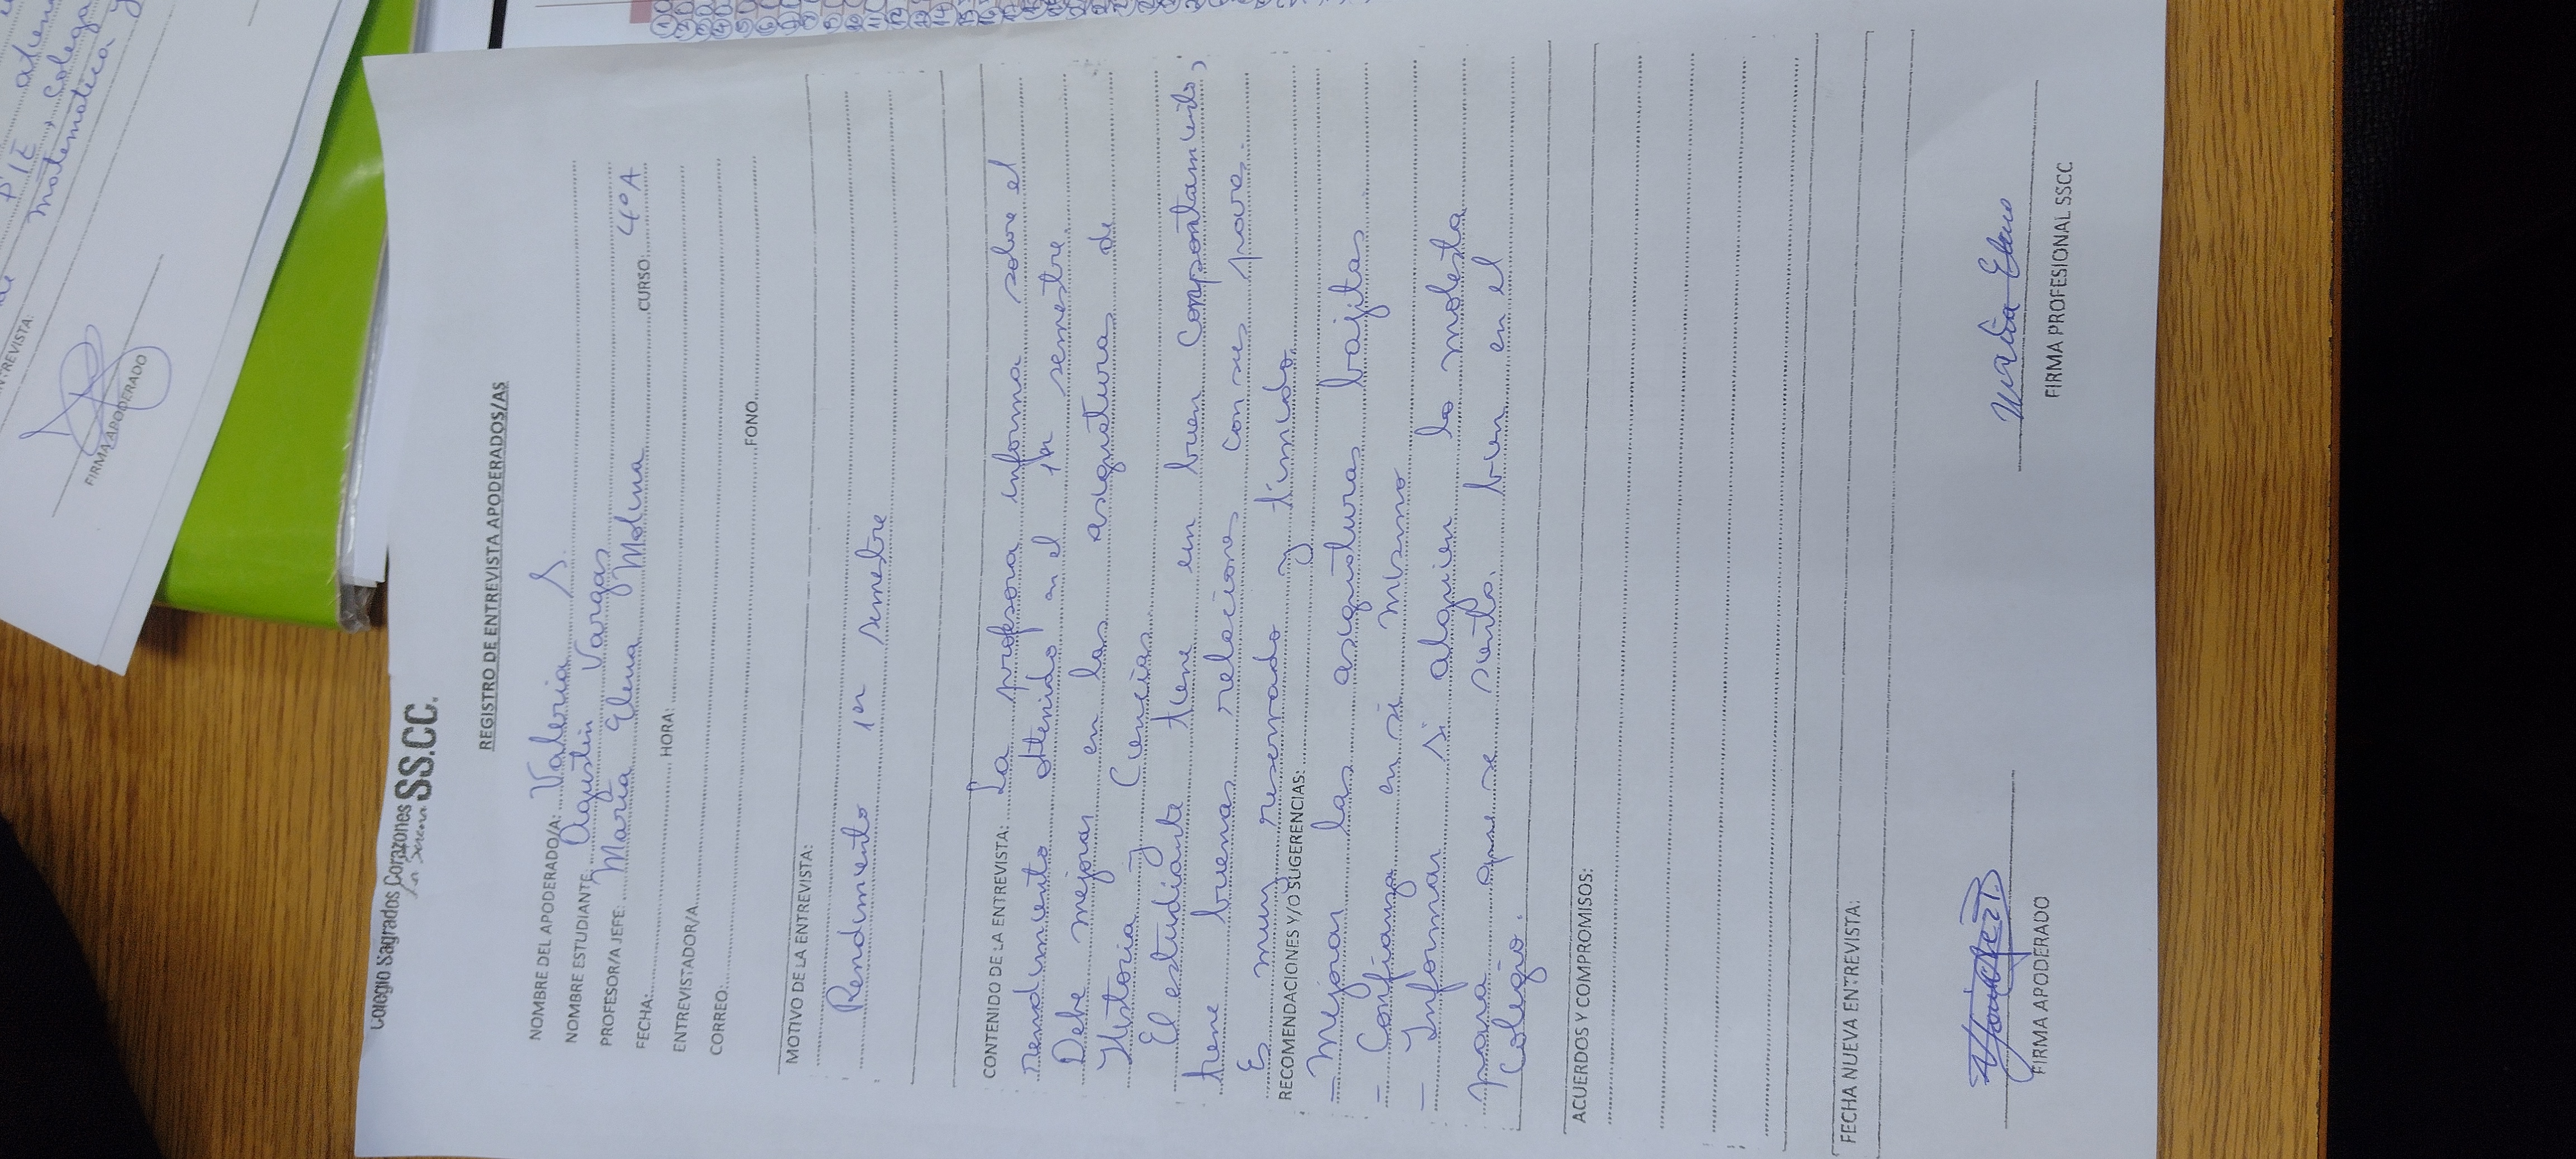 Colegio Sagrados Corazones
La Serena SS.CC.
REGISTRO DE ENTREVISTA APODERADOS/AS
NOMBRE DEL APODERADO/A: Valeria S.
NOMBRE ESTUDIANTE: Agustín Vargas
PROFESOR/A JEFE: María Elena Molina CURSO 4°A
FECHA: HORA:
ENTREVISTADOR/A
CORREO: FONO
MOTIVO DE LA ENTREVISTA:
Rendimiento 1er semestre
CONTENIDO DE LA ENTREVISTA: La profesora informa sobre el
rendimiento obtenido en el 1er semestre.
Debe mejorar en las asignaturas de
Historia y Ciencias.
El estudiante tiene un buen comportamiento,
tiene buenas relaciones con sus pares.
Es muy reservado y tímido.
RECOMENDACIONES Y/O SUGERENCIAS:
- Mejorar las asignaturas bajitas
- Confianza en si mismo
- Informar si alguien lo molesta
para que se sienta bien en el
Colegio.
ACUERDOS Y COMPROMISOS:
FECHA NUEVA ENTREVISTA:
FIRMA APODERADO
María Elena
FIRMA PROFESIONAL SSCC
PIE
Colega
matemática y
FIRMA APODERADO